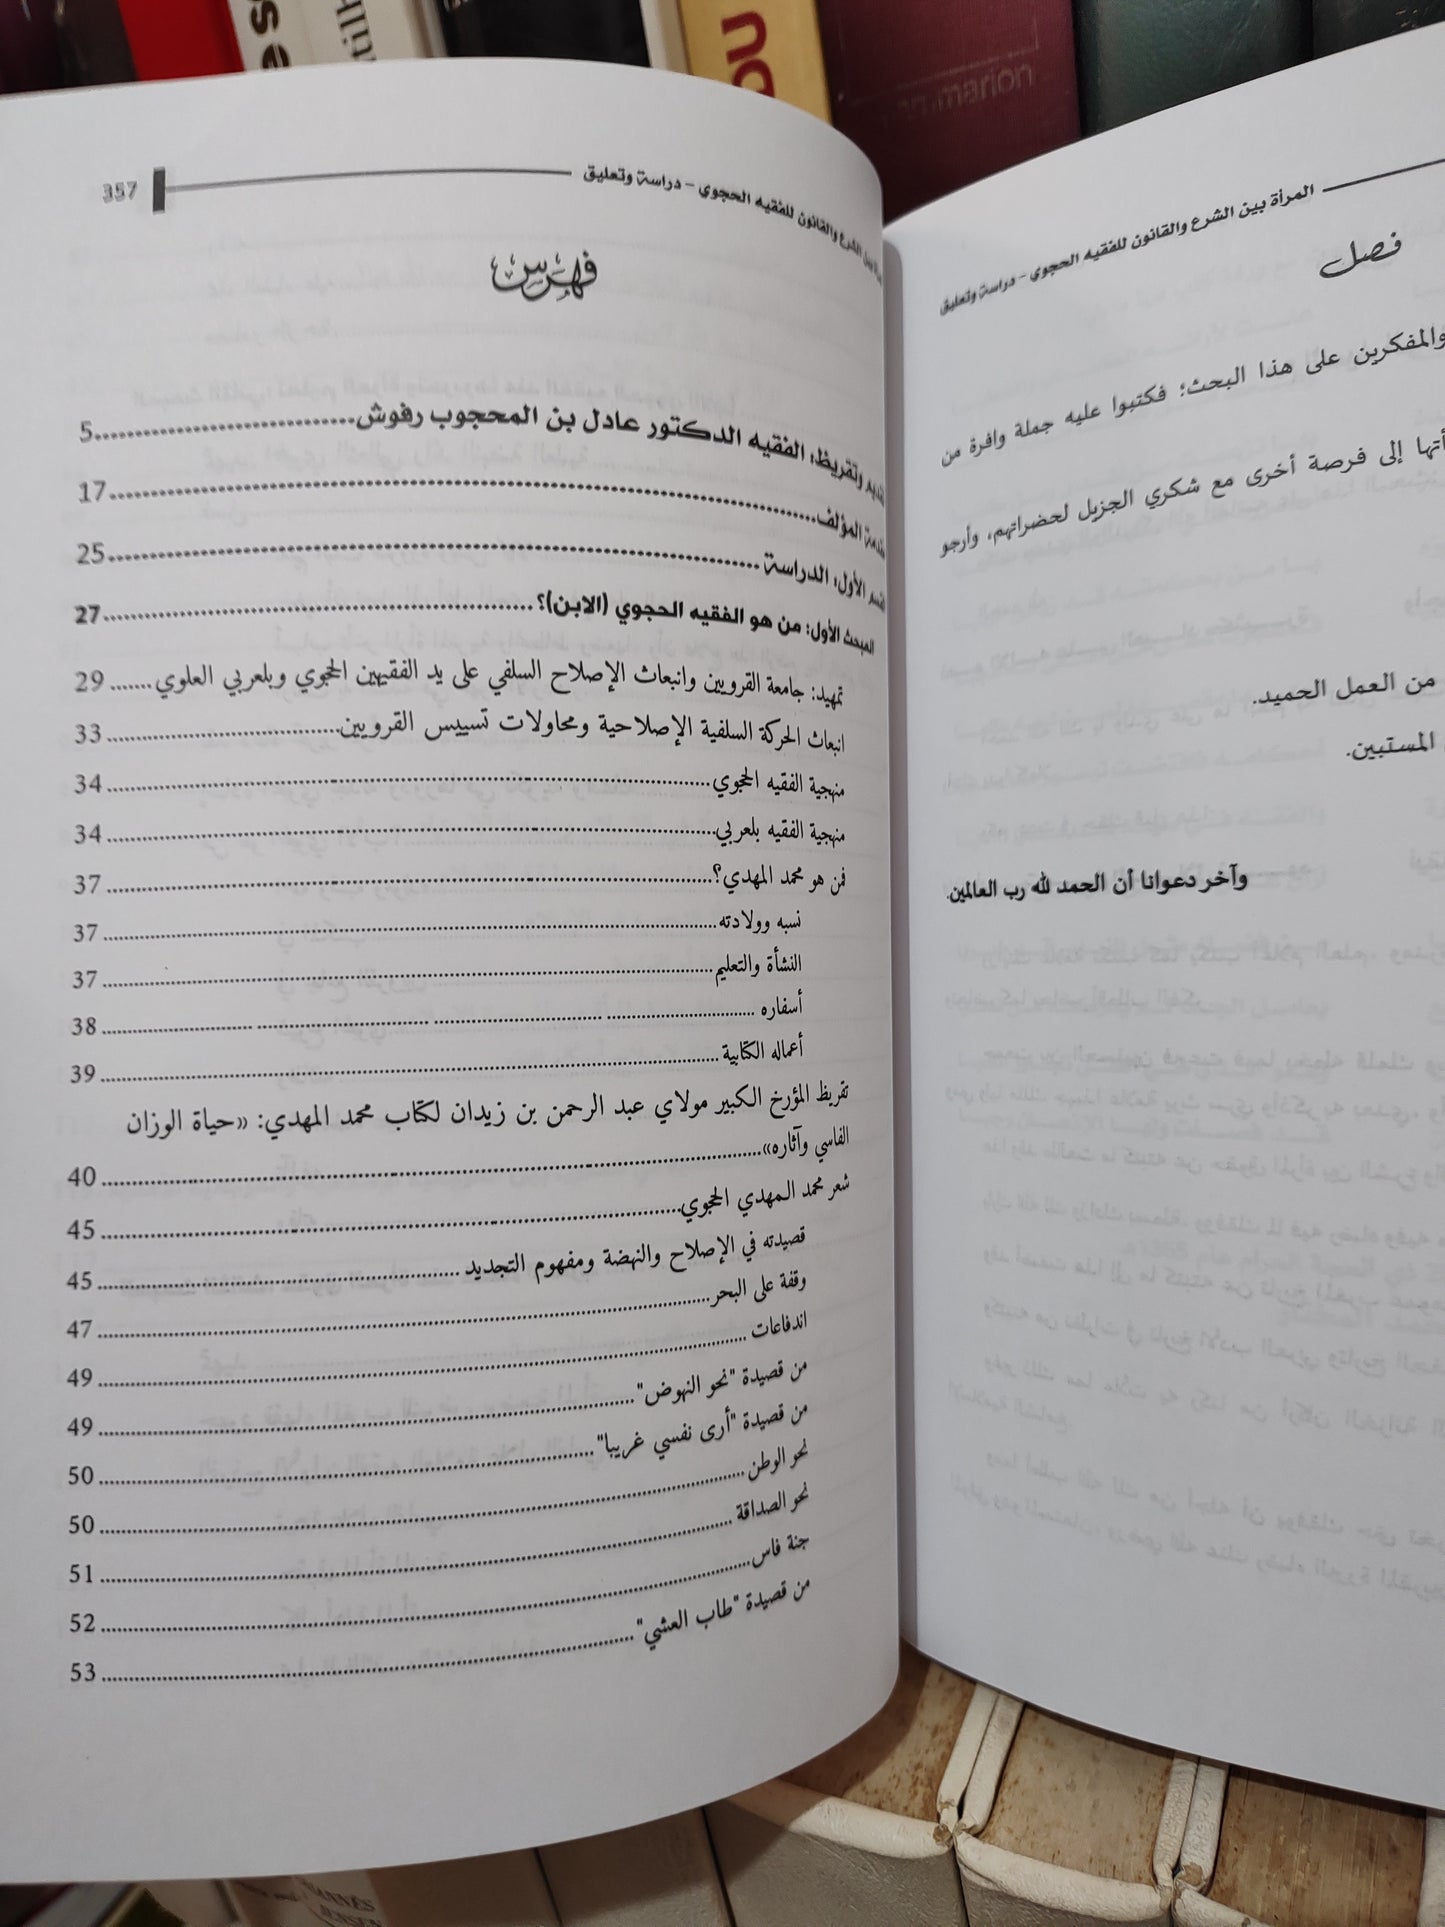 المرأة بين الشرع والقانون للفقيه الحجوي - دراسة وتعليق
فصل
والمفكرين على هذا البحث؛ فكتبوا عليه جملة وافرة من
إلى فرصة أخرى مع شكري الجزيل لحضراتهم، وأرجو
من العمل الحميد.
المستبين.
وآخر دعوانا أن الحمد لله رب العالمين.
بين الشرع والقانون للفقيه الحجوي - دراسة وتعليق
357
فهرس
وتقريظ: الفقيه الدكتور عادل بن المحجوب رفوش 5
المؤلف 17
الأول: الدراسة 25
المبحث الأول: من هو الفقيه الحجوي (الابن)؟ 27
تمهيد: جامعة القرويين وانبعاث الإصلاح السلفي على يد الفقيهين الحجوي وبلعربي العلوي 29
انبعاث الحركة السلفية الإصلاحية ومحاولات تسييس القرويين 33
منهجية الفقيه الحجوي 34
منهجية الفقيه بلعربي 34
فمن هو محمد المهدي؟ 37
نسبه وولادته 37
النشأة والتعليم 37
أسفاره 38
أعماله الكتابية 39
تقريظ المؤرخ الكبير مولاي عبد الرحمن بن زيدان لكتاب محمد المهدي: «حياة الوزان
الفاسي وآثاره» 40
شعر محمد المهدي الحجوي 45
قصيدته في الإصلاح والنهضة ومفهوم التجديد 45
وقفة على البحر 47
اندفاعات 49
من قصيدة "نحو النهوض" 49
من قصيدة "أرى نفسي غريبا" 50
نحو الوطن 50
نحو الصداقة 51
جنة فاس 52
من قصيدة "طاب العشي" 53